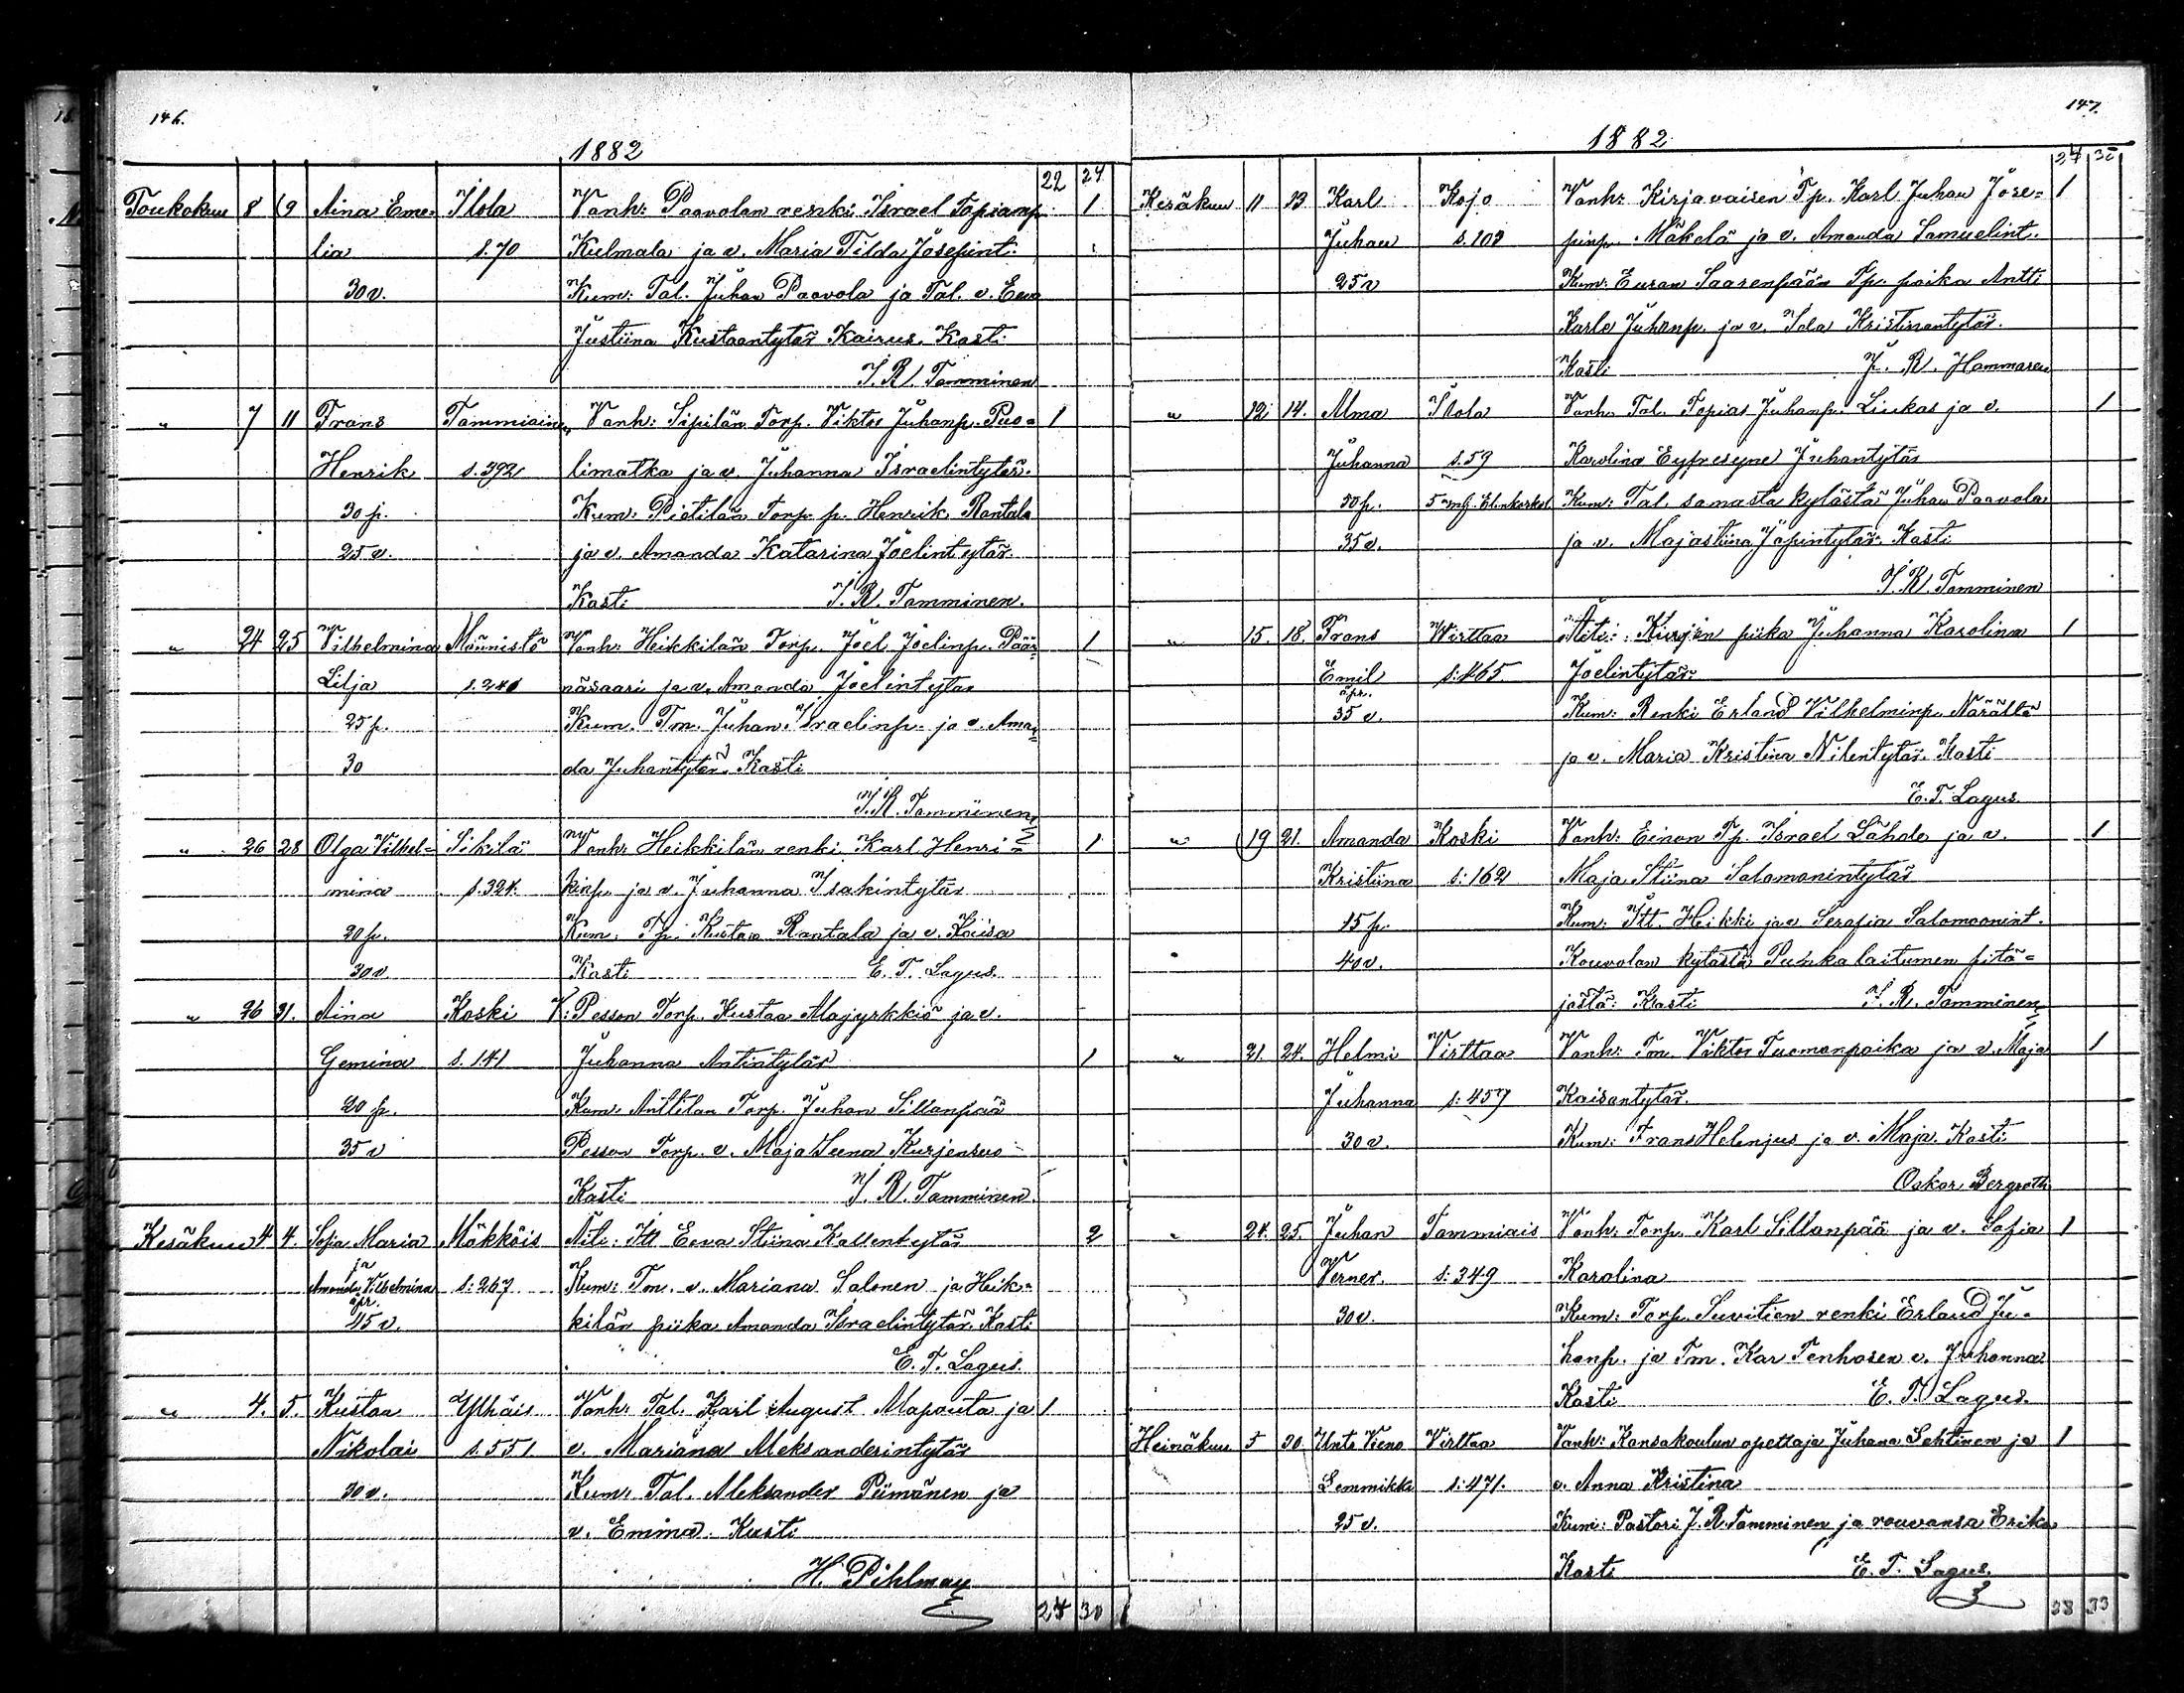 146.
1882
22 24
Toukokuu 8 9 Aina Eme- Ilola Vanh: Paavolan renki Israel Topianp. 1
lia s. 70 Kulmala ja v. Maria Tilda Josefint.
30 v. Kum: Tal. Juhan Paavola ja Tal. v. Eeva
Justiina Kustaantytär Kairus. Kasti
J. R. Tamminen
" 7 11 Frans Tammiain Vanh: Sipilän Torp. Viktor Juhanp. Puo- 1
Henrik s. 392 limatka ja v. Juhanna Israelintytär.
30 p. Kum: Pietilän Torp. p. Henrik Rantala
25 v. ja v. Amanda Katarina Joelintytär.
Kasti J. R. Tamminen.
" 24 25 Vilhelmina Männistö Vanh: Heikkilän Torp. Joel Joelinp. Pää- 1
Lilja s. 240 näsaari ja v. Amanda Joelintytär
25 p. Kum. Tm. Juhan Israelinp. ja v. Aman-
30 da Juhantytär. Kasti
J. R. Tamminen
" 26 28 Olga Vilhel- Sikilä Vanh: Heikkilän renki Karl Henri- 1
mina s. 324. kinp. ja v. Juhanna Isakintytär
20 p. Kum. Tp. Kustaa Rantala ja v. Loviisa
30 v. Kasti E. T. Lagus.
" 26 31. Aina Koski V: Pesson Torp. Kustaa Alajyrkkiö ja v.
Gemina s. 141 Juhanna Antintytär 1
20 p. Kum: Anttilan Torp. Juhan Sillanpää
35 v Pesson Torp. v. Maja Leena Kurjensuo
Kasti J. R. Tamminen.
Kesäkuu 4 4. Sofia Maria Mäkköis Äiti: Itt Eeva Stiina Kallentytär 2
ja
Amanda Vilhelmina s: 267 Kum: Tm. v. Mariana Salonen ja Heik-
äpr.
45 v. kilän piika Amanda Israelintytär. Kasti
E. T. Lagus.
" 4. 5. Kustaa Ylhäis Vanh: Tal. Karl August Alapouta ja 1
Nikolai s. 551 v. Mariana Aleksanderintytär
30 v. Kum: Tal. Aleksander Piimänen ja
v. Emma. Kasti
H. Pihlman
24 30
147.
1882
24 30
Kesäkuu 11 13 Karl Kojo Vanh: Kirjavaisen Tp. Karl Juhan Jose- 1
Juhan s. 103 pinp. Mäkelä ja v. Amanda Samuelint.
25 v Kum: Euran Saarenpään Tp. poika Antti
Karle Juhanp. ja v. Ida Kristinantytär.
Kasti J. R. Hammaren
" 12 14. Alma Ilola Vanh. Tal. Topias Juhanp. Liukas ja v. 1
Juhanna s. 59 Karolina Eufrosyne Juhantytär
30 p. Kum: Tal. samasta kylästä Juhan Paavola
35 v. ja v. Majastiina Japintytär. Kasti
J. R. Tamminen
" 15. 18. Frans Virttaa Äiti: Kurjen piika Juhanna Karolina 1
Emil s: 465. Joelintytär.
äpr.
35 v. Kum: Renki Erland Vilhelminp. Närältä
ja v. Maria Kristina Nilentytär. Kasti
E. T. Lagus.
" 19 21. Amanda Koski Vanh: Einon Tp. Israel Lähde ja v. 1
Kristiina s: 162 Maja Stiina Salomonintytär
15 p. Kum: Itt. Heikki ja v Serafia Salomoonint.
40 v. Kouvolan kylästä Punkalaitumen pitä-
jästä: Kasti J. R. Tamminen
" 21. 24. Helmi Virttaa Vanh: Tm. Viktor Tuomanpoika ja v. Maja 1
Juhanna s: 457 Kaisantytär.
30 v. Kum: Frans Helenius ja v. Maja. Kasti
Oskar Bergroth
" 24. 25. Juhan Tammiais Vanh: Torp. Karl Sillanpää ja v. Sofia 1
Verner. s: 349 Karolina
30 v. Kum: Torp. Suvitien renki Erland Ju-
hanp. ja Tm. Kar Tenhosen v. Juhanna
Kasti E. T. Lagus.
Heinäkuu 5 30. Unto Vieno Virttaa Vanh: Kansakoulun opettaja Juhana Lehtinen ja 1
Lemmikki s: 471. v. Anna Kristina
25 v. Kum: Pastori J. R. Tamminen ja rouvansa Erika
Kasti E. T. Lagus.
28 33